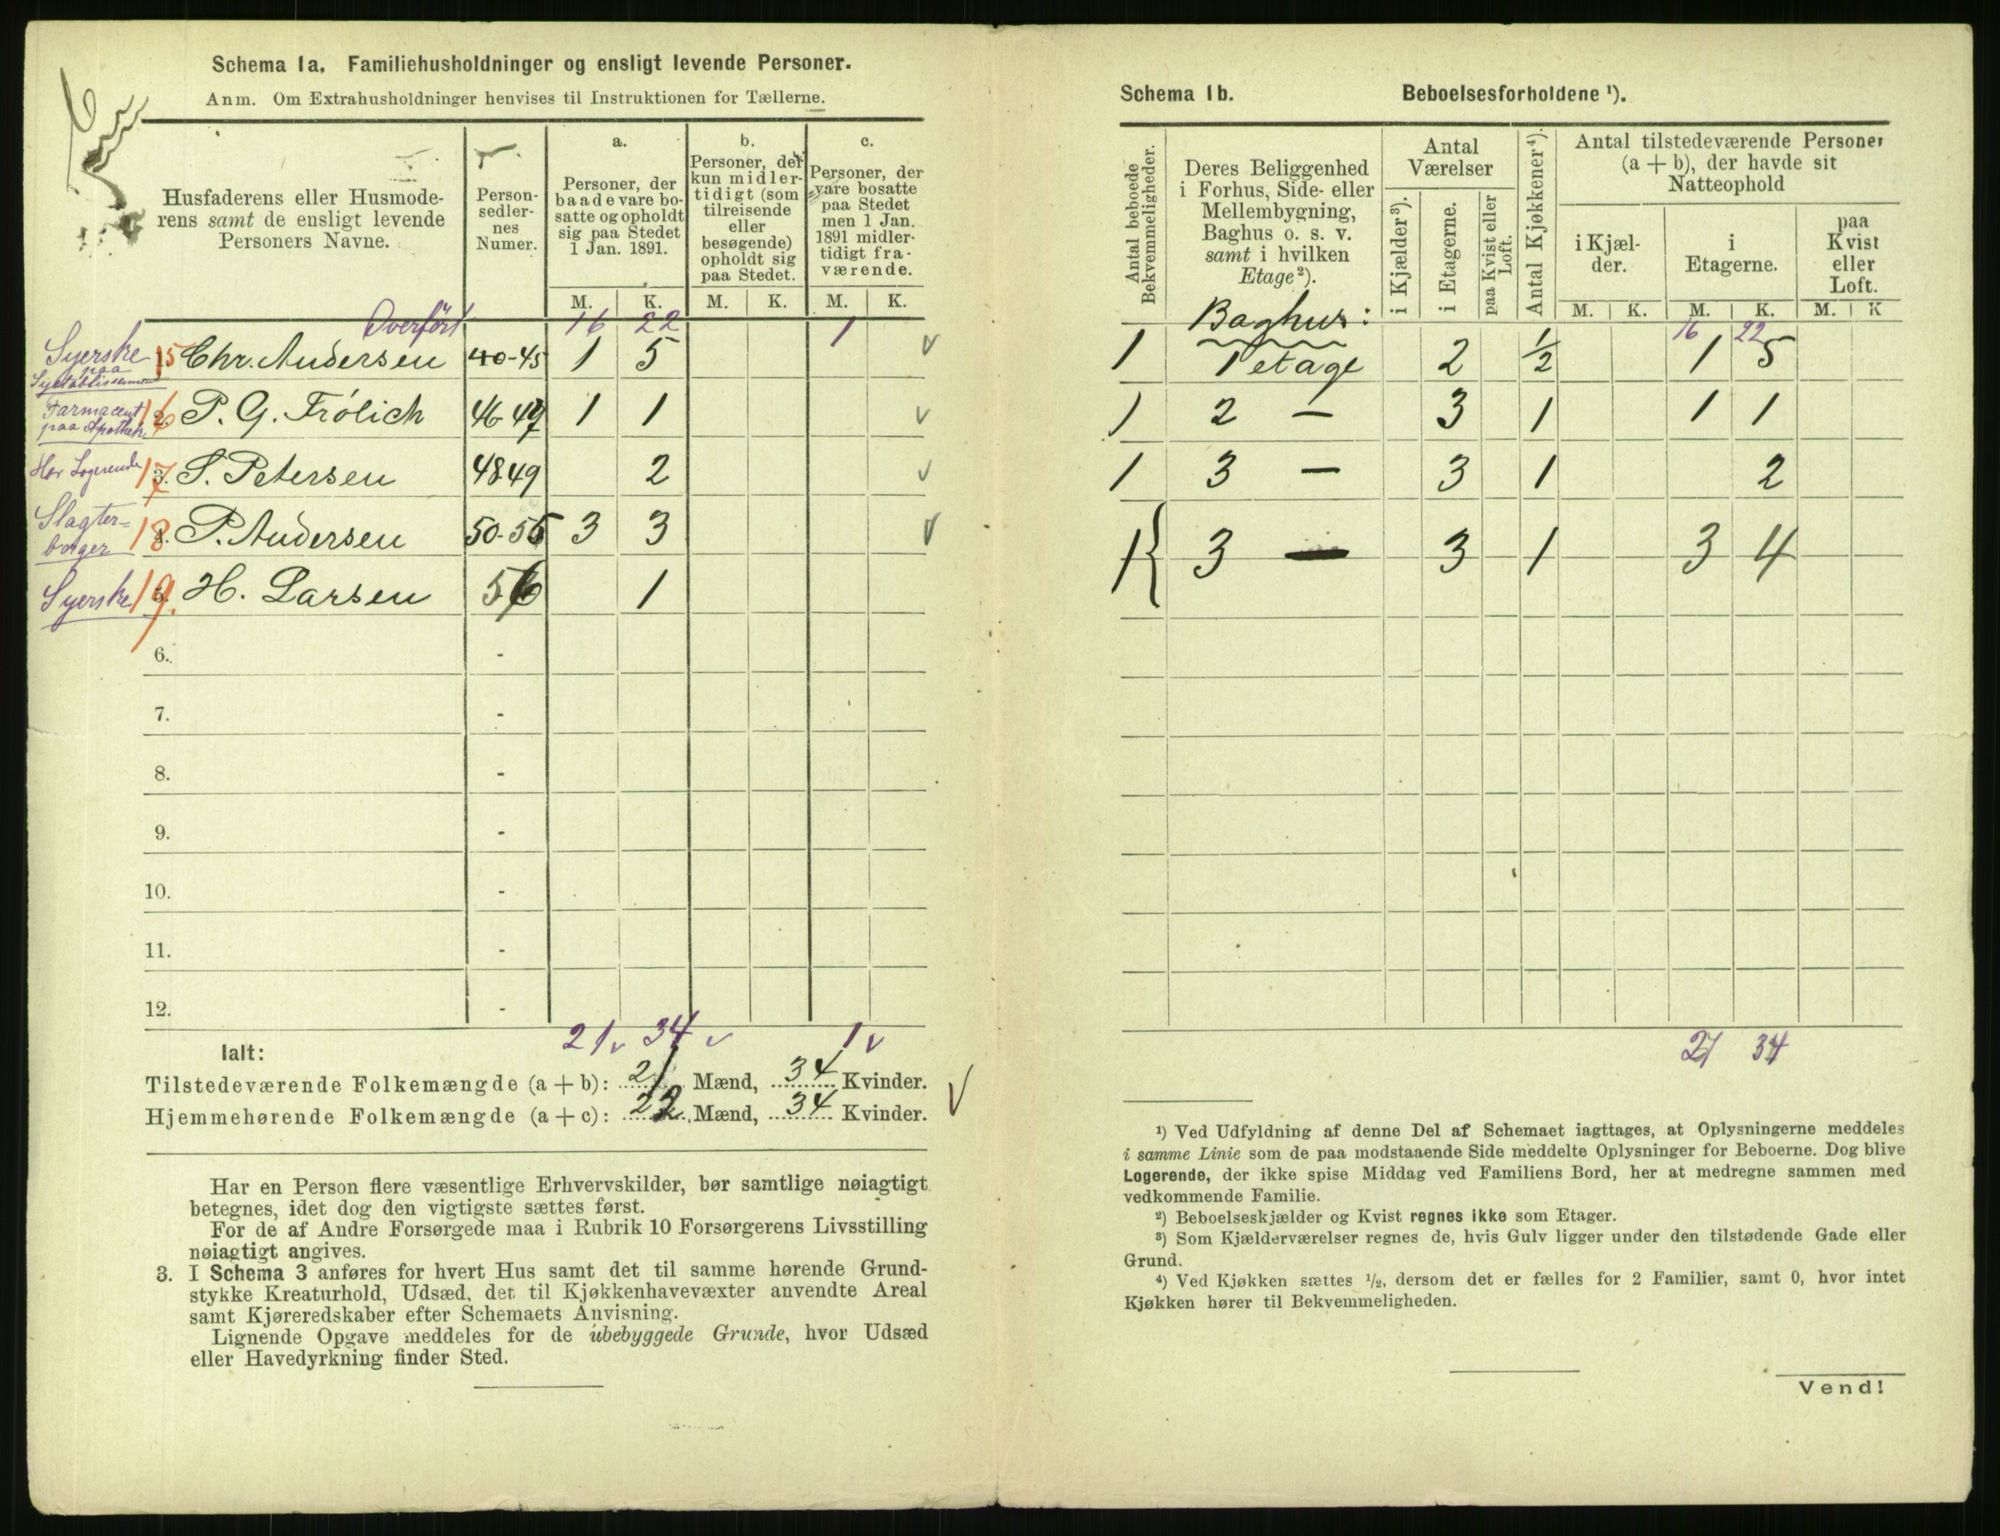 Schema 1a. Familiehusholdninger og ensligt levende Personer.
Anm. Om Extrahusholdninger henvises til Instruktionen for Tællerne.
Husfaderens eller Husmoderens samt de ensligt levende Personers Navne.
Personsedlernes Numer.
a.
Personer, der baade vare bosatte og opholdt sig paa Stedet 1 Jan. 1891.
b.
Personer, der kun midlertidigt (som tilreisende eller besøgende) opholdt sig paa Stedet.
c.
Personer, der vare bosatte paa Stedet men 1 Jan. 1891 midlertidigt fraværende.
M. K. M. K. M. K.
Overført 16 22 1
Syerske paa Syetablissement 15 Chr. Andersen 40-45 1 5
Farmaceut paa Apothek 16 2. P. G. Frølich 46 47 1 1
Har Logerende 17 3. S. Petersen 48 49 2
Slagterborger 18 P. Andersen 50-55 3 3
Syerske 19. H. Larsen 56 1
6. -
7. -
8. -
9. -
10. -
11. -
12. -
21 34 1
Ialt:
Tilstedeværende Folkemængde (a + b): 21 Mænd, 34 Kvinder.
Hjemmehørende Folkemængde (a + c): 22 Mænd, 34 Kvinder.
Har en Person flere væsentlige Erhvervskilder, bør samtlige nøiagtigt
betegnes, idet dog den vigtigste sættes først.
For de af Andre Forsørgede maa i Rubrik 10 Forsørgerens Livsstilling
nøiagtigt angives.
3. I Schema 3 anføres for hvert Hus samt det til samme hørende Grund-
stykke Kreaturhold, Udsæd, det til Kjøkkenhavevæxter anvendte Areal
samt Kjøreredskaber efter Schemaets Anvisning.
Lignende Opgave meddeles for de ubebyggede Grunde, hvor Udsæd
eller Havedyrkning finder Sted.
Schema 1b. Beboelsesforholdene ¹).
Antal beboede Bekvemmeligheder.
Deres Beliggenhed i Forhus, Side- eller Mellembygning, Baghus o. s. v. samt i hvilken Etage²).
Antal Værelser
i Kjælder³).
i Etagerne.
paa Kvist eller Loft.
Antal Kjøkkener⁴).
Antal tilstedeværende Personer (a + b), der havde sit Natteophold
i Kjælder.
i Etagerne.
paa Kvist eller Loft.
M. K. M. K. M. K
Baghus: 16 22
1 1 etage 2 ½ 1 5
1 2 — 3 1 1 1
1 3 — 3 1 2
1 { 3 — 3 1 3 4
21 34
¹) Ved Udfyldning af denne Del af Schemaet iagttages, at Oplysningerne meddeles
i samme Linie som de paa modstaaende Side meddelte Oplysninger for Beboerne. Dog blive
Logerende, der ikke spise Middag ved Familiens Bord, her at medregne sammen med
vedkommende Familie.
²) Beboelseskjælder og Kvist regnes ikke som Etager.
³) Som Kjælderværelser regnes de, hvis Gulv ligger under den tilstødende Gade eller
Grund.
⁴) Ved Kjøkken sættes ½, dersom det er fælles for 2 Familier, samt 0, hvor intet
Kjøkken hører til Bekvemmeligheden.
Vend!